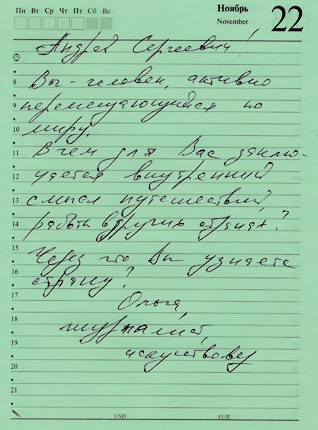 Пн Вт Ср Чт Пт Сб Вс
Ноябрь
November
22
Андрей Сергеевич!
8 Вы - человек, активно
9 перемещающийся по
10 миру.
11 В чем для Вас заклю-
12 чается внутренний
13 смысл путешествий,
14 работы в других странах?
15 Через что Вы узнаете
16 страну?
17 Ольга,
18 журналист,
19 искусствовед
20
21
USD EUR